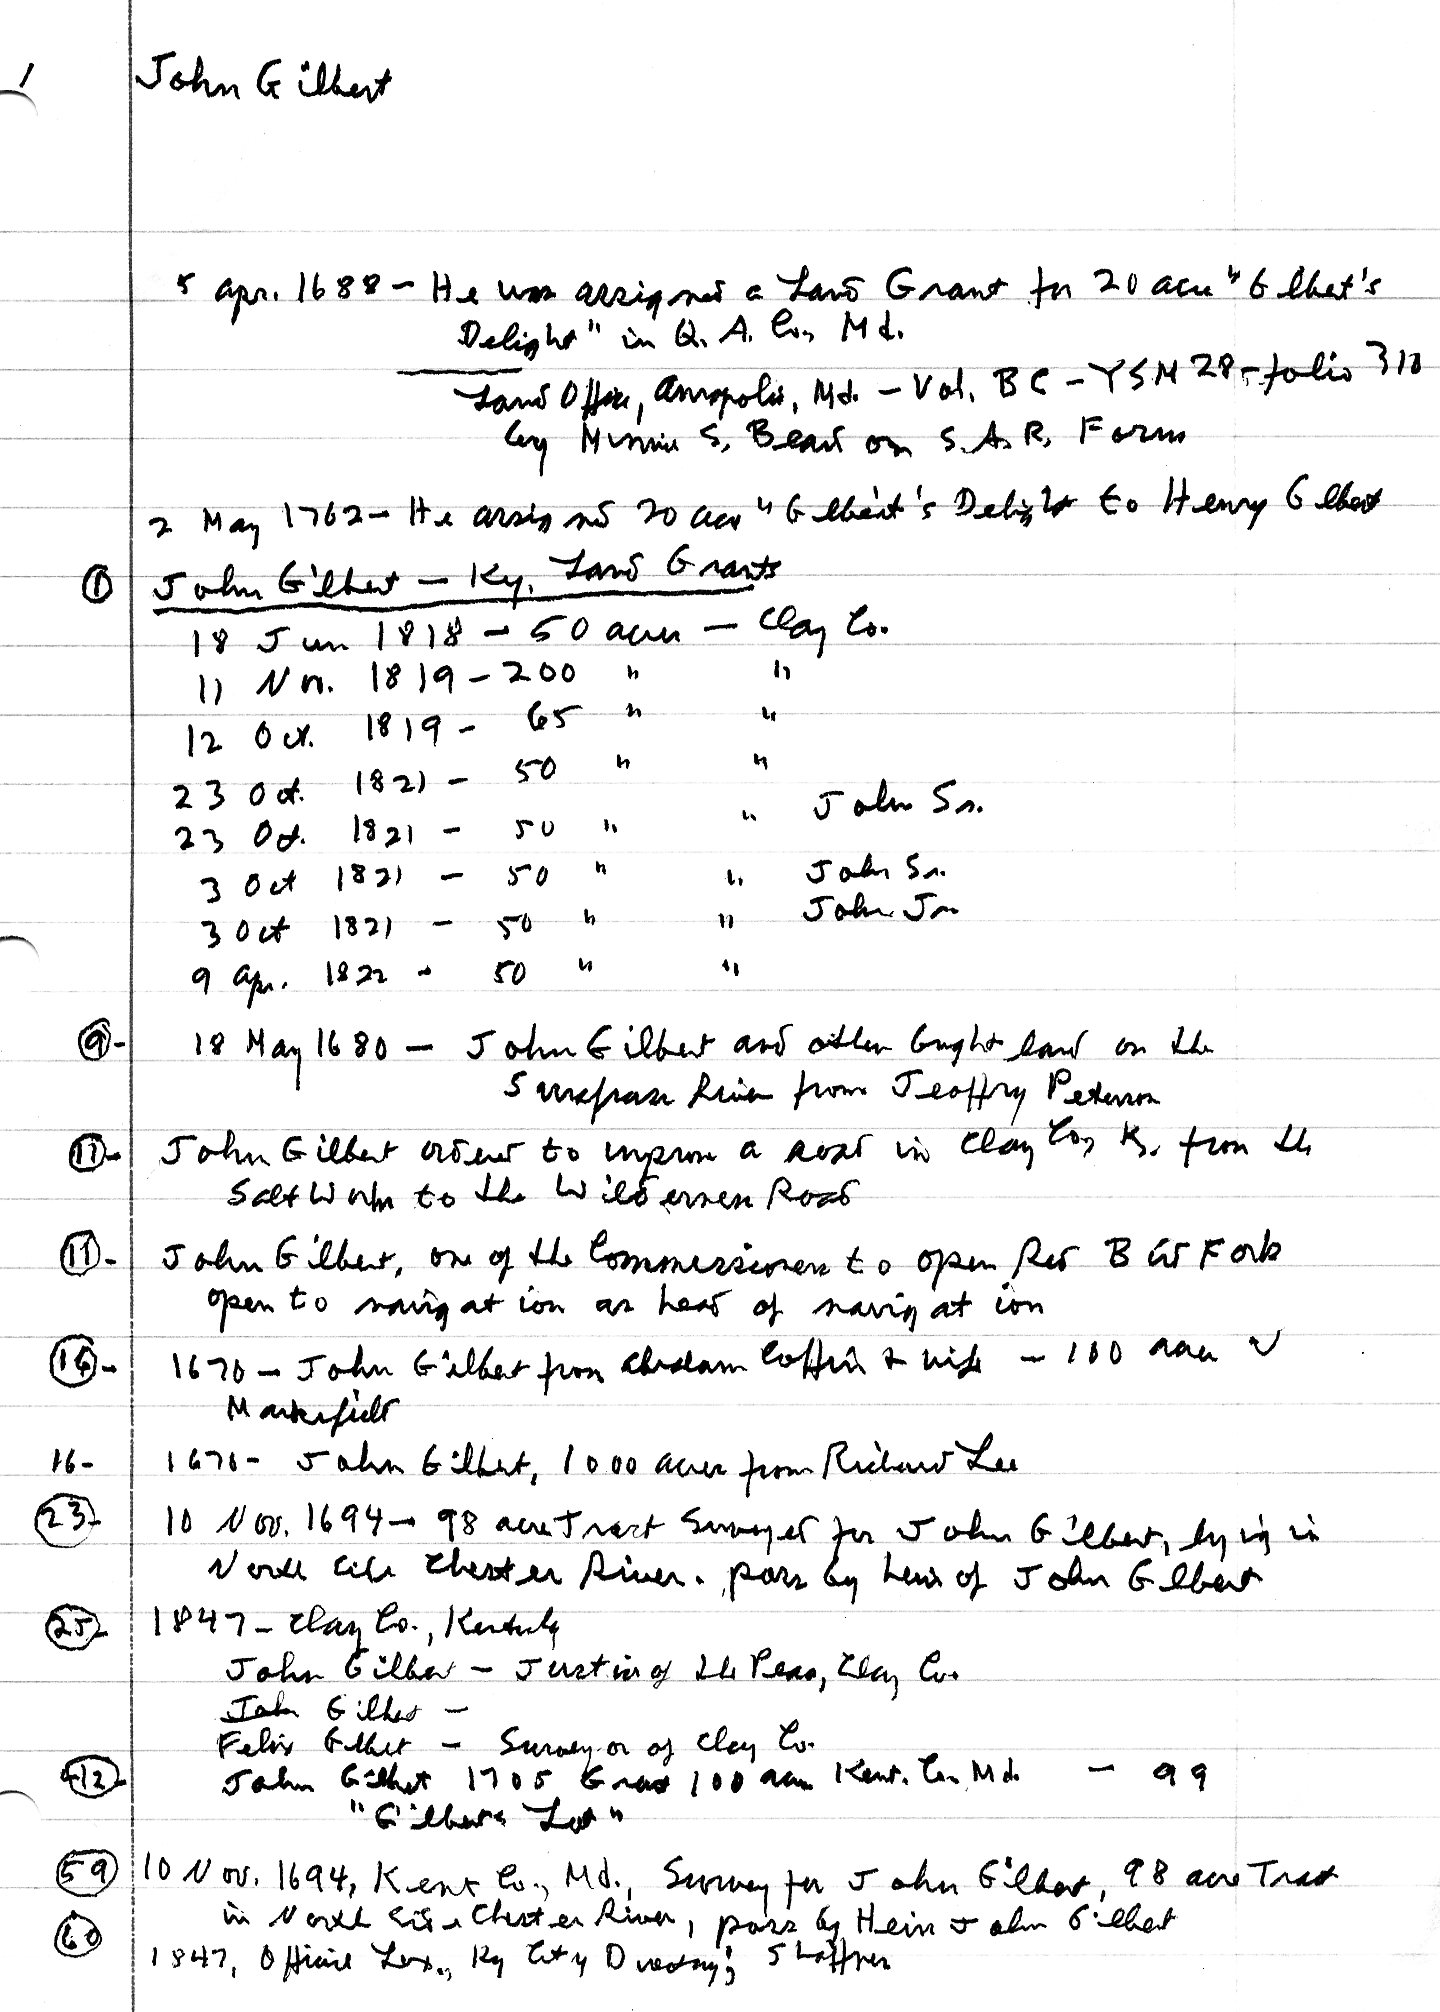 1 John Gilbert
5 Apr. 1688 - He was assigned a Land Grant for 20 acre "Gilbert's
Delight" in Q. A. Co., Md.
Land Office, Annapolis, Md. - Vol. BC - YSM 28 - folio 310
by Minnie S. Beard on S.A.R. Form
2 May 1762 - He assigned 20 acre "Gilbert's Delight to Henry Gilbert
① John Gilbert - Ky. Land Grants
18 Jun 1818 - 50 acres - Clay Co.
11 Nov. 1819 - 200 " "
12 Oct. 1819 - 65 " "
23 Oct. 1821 - 50 " "
23 Oct. 1821 - 50 " " John Sr.
3 Oct 1821 - 50 " " John Sr.
3 Oct 1821 - 50 " " John Jr.
9 Apr. 1822 - 50 " "
⑨- 18 May 1680 - John Gilbert and other bought land on the
Sassafrass River from Jeoffry Peterson
⑪- John Gilbert ordered to improve a road in Clay Co., K. from the
Salt Works to the Wilderness Road
⑪- John Gilbert, one of the Commissioners to open Red Bird Fork
open to navigation as head of navigation
- 1670 - John Gilbert from Abraham Coffin & wife - 100 acres
Marksfield
16- 1670 - John Gilbert, 1000 acres from Richard Lee
(23)- 10 Nov. 1694 - 98 acre Tract Surveyed for John Gilbert, lying in
North side Chester River. poss by heirs of John Gilbert
(25)- 1847 - Clay Co., Kentucky
John Gilbert - Justice of the Peace, Clay Co.
John Gilbert -
Felix Gilbert - Surveyor of Clay Co.
(42)- John Gilbert 1705 Grant 100 acres Kent. Co. Md. - 99
"Gilberts Lot"
(59) 10 Nov. 1694, Kent Co., Md., Survey for John Gilbert, 98 acre Tract
in North Side Chester River, poss by Heirs John Gilbert
(60) 1847, Lex., Ky City Directory; Shaffner